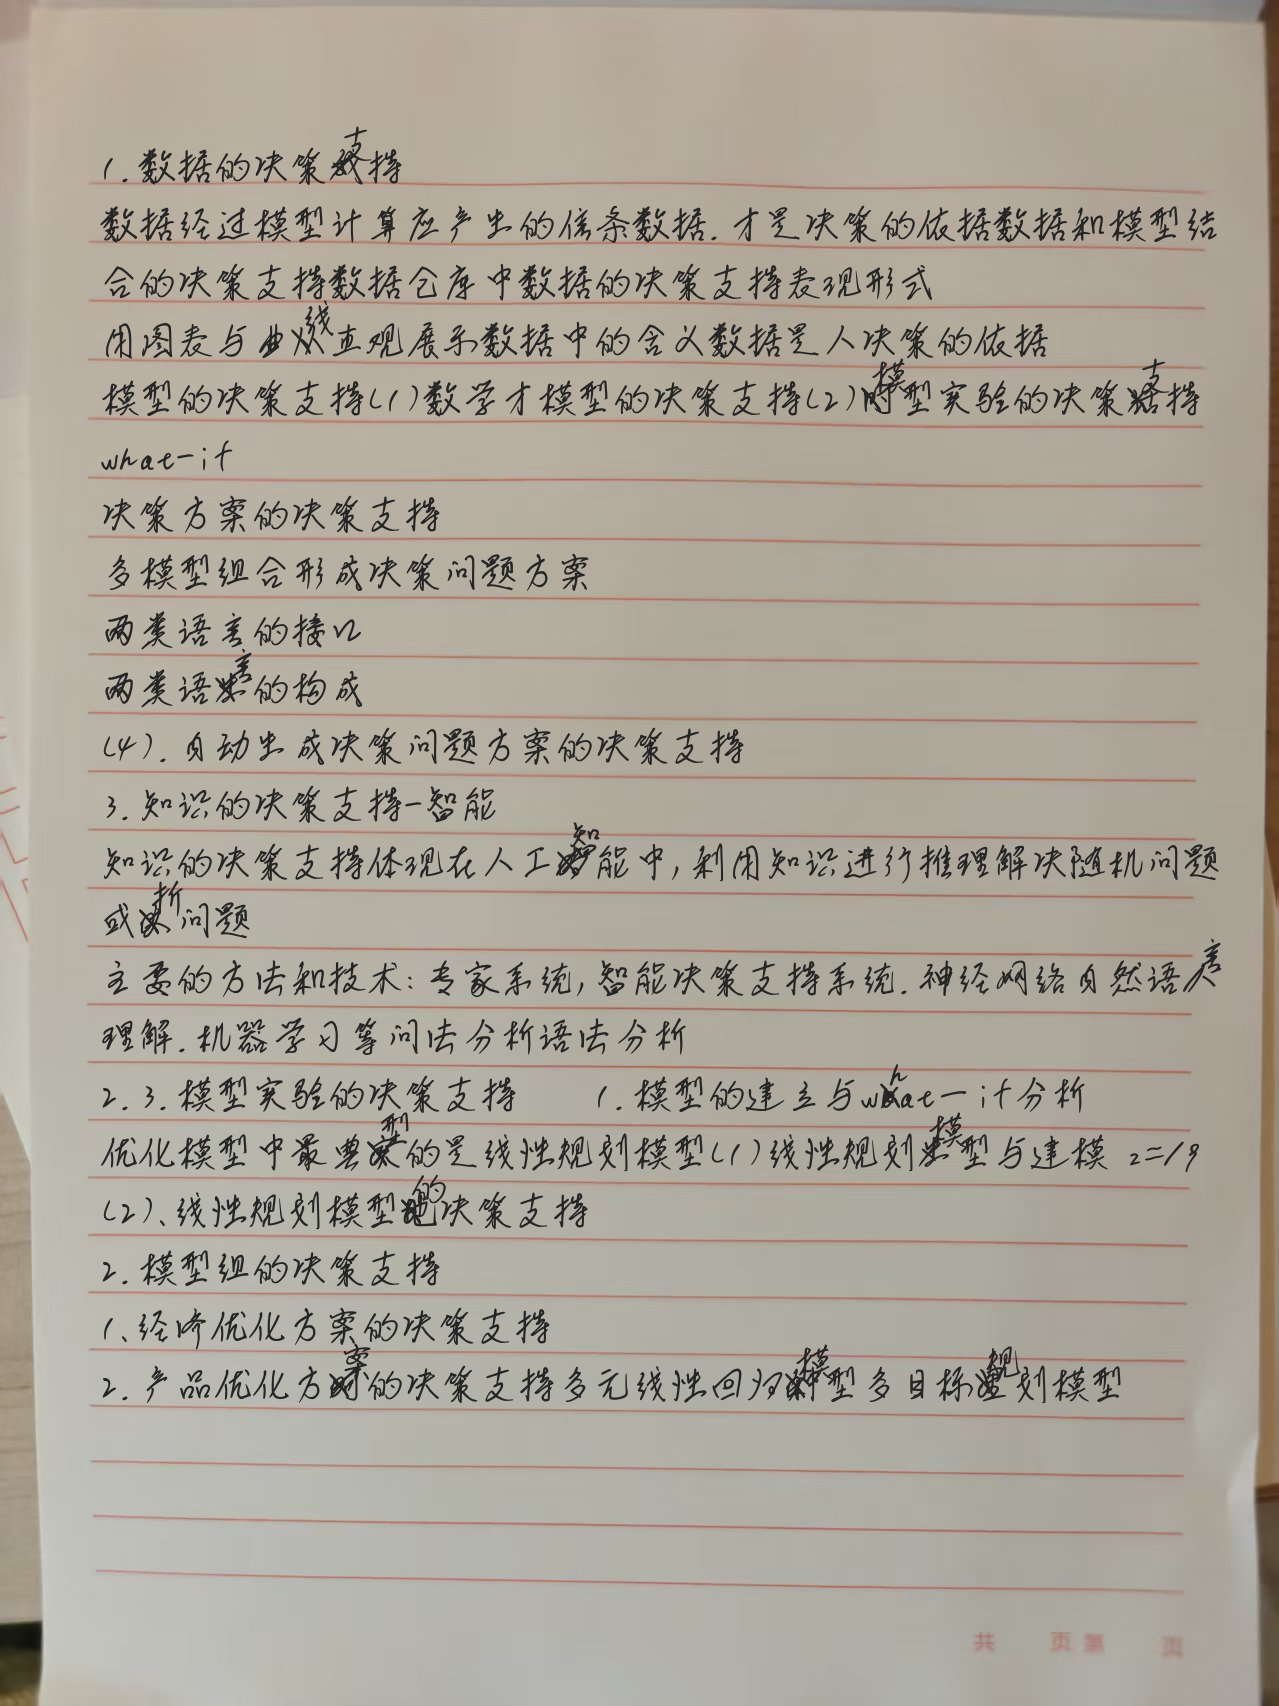 1.数据的决策支持
数据经过模型计算应产生的信条数据.才是决策的依据数据和模型结
合的决策支持数据仓库中数据的决策支持表现形式
用图表与曲线直观展示数据中的含义数据是人决策的依据
模型的决策支持(1)数学才模型的决策支持(2)模型实验的决策支持
what-it
决策方案的决策支持
多模型组合形成决策问题方案
两类语言的接口
两类语言的构成
(4).自动生成决策问题方案的决策支持
3.知识的决策支持-智能
知识的决策支持体现在人工智能中,利用知识进行推理解决随机问题
或析问题
主要的方法和技术:专家系统,智能决策支持系统.神经网络自然语言
理解.机器学习等问法分析语法分析
2.3.模型实验的决策支持 1.模型的建立与what-it分析
优化模型中最典型的是线性规划模型(1)线性规划模型与建模 2=19
(2)、线性规划模型的决策支持
2.模型组的决策支持
1、经济优化方案的决策支持
2.产品优化方案的决策支持多元线性回归模型多目标规划模型
共 页 第 页